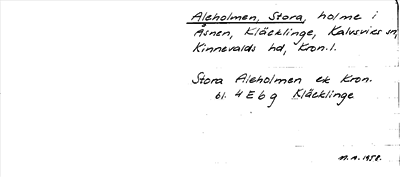 Aleholmen, Stora, holme i
Åsnen, Kläcklinge, Kalvsviks sn,
Kinnevalds hd, Kron. l.
Stora Aleholmen ek Kron.
bl. 4 E b g Kläcklinge
M. A. 1958.